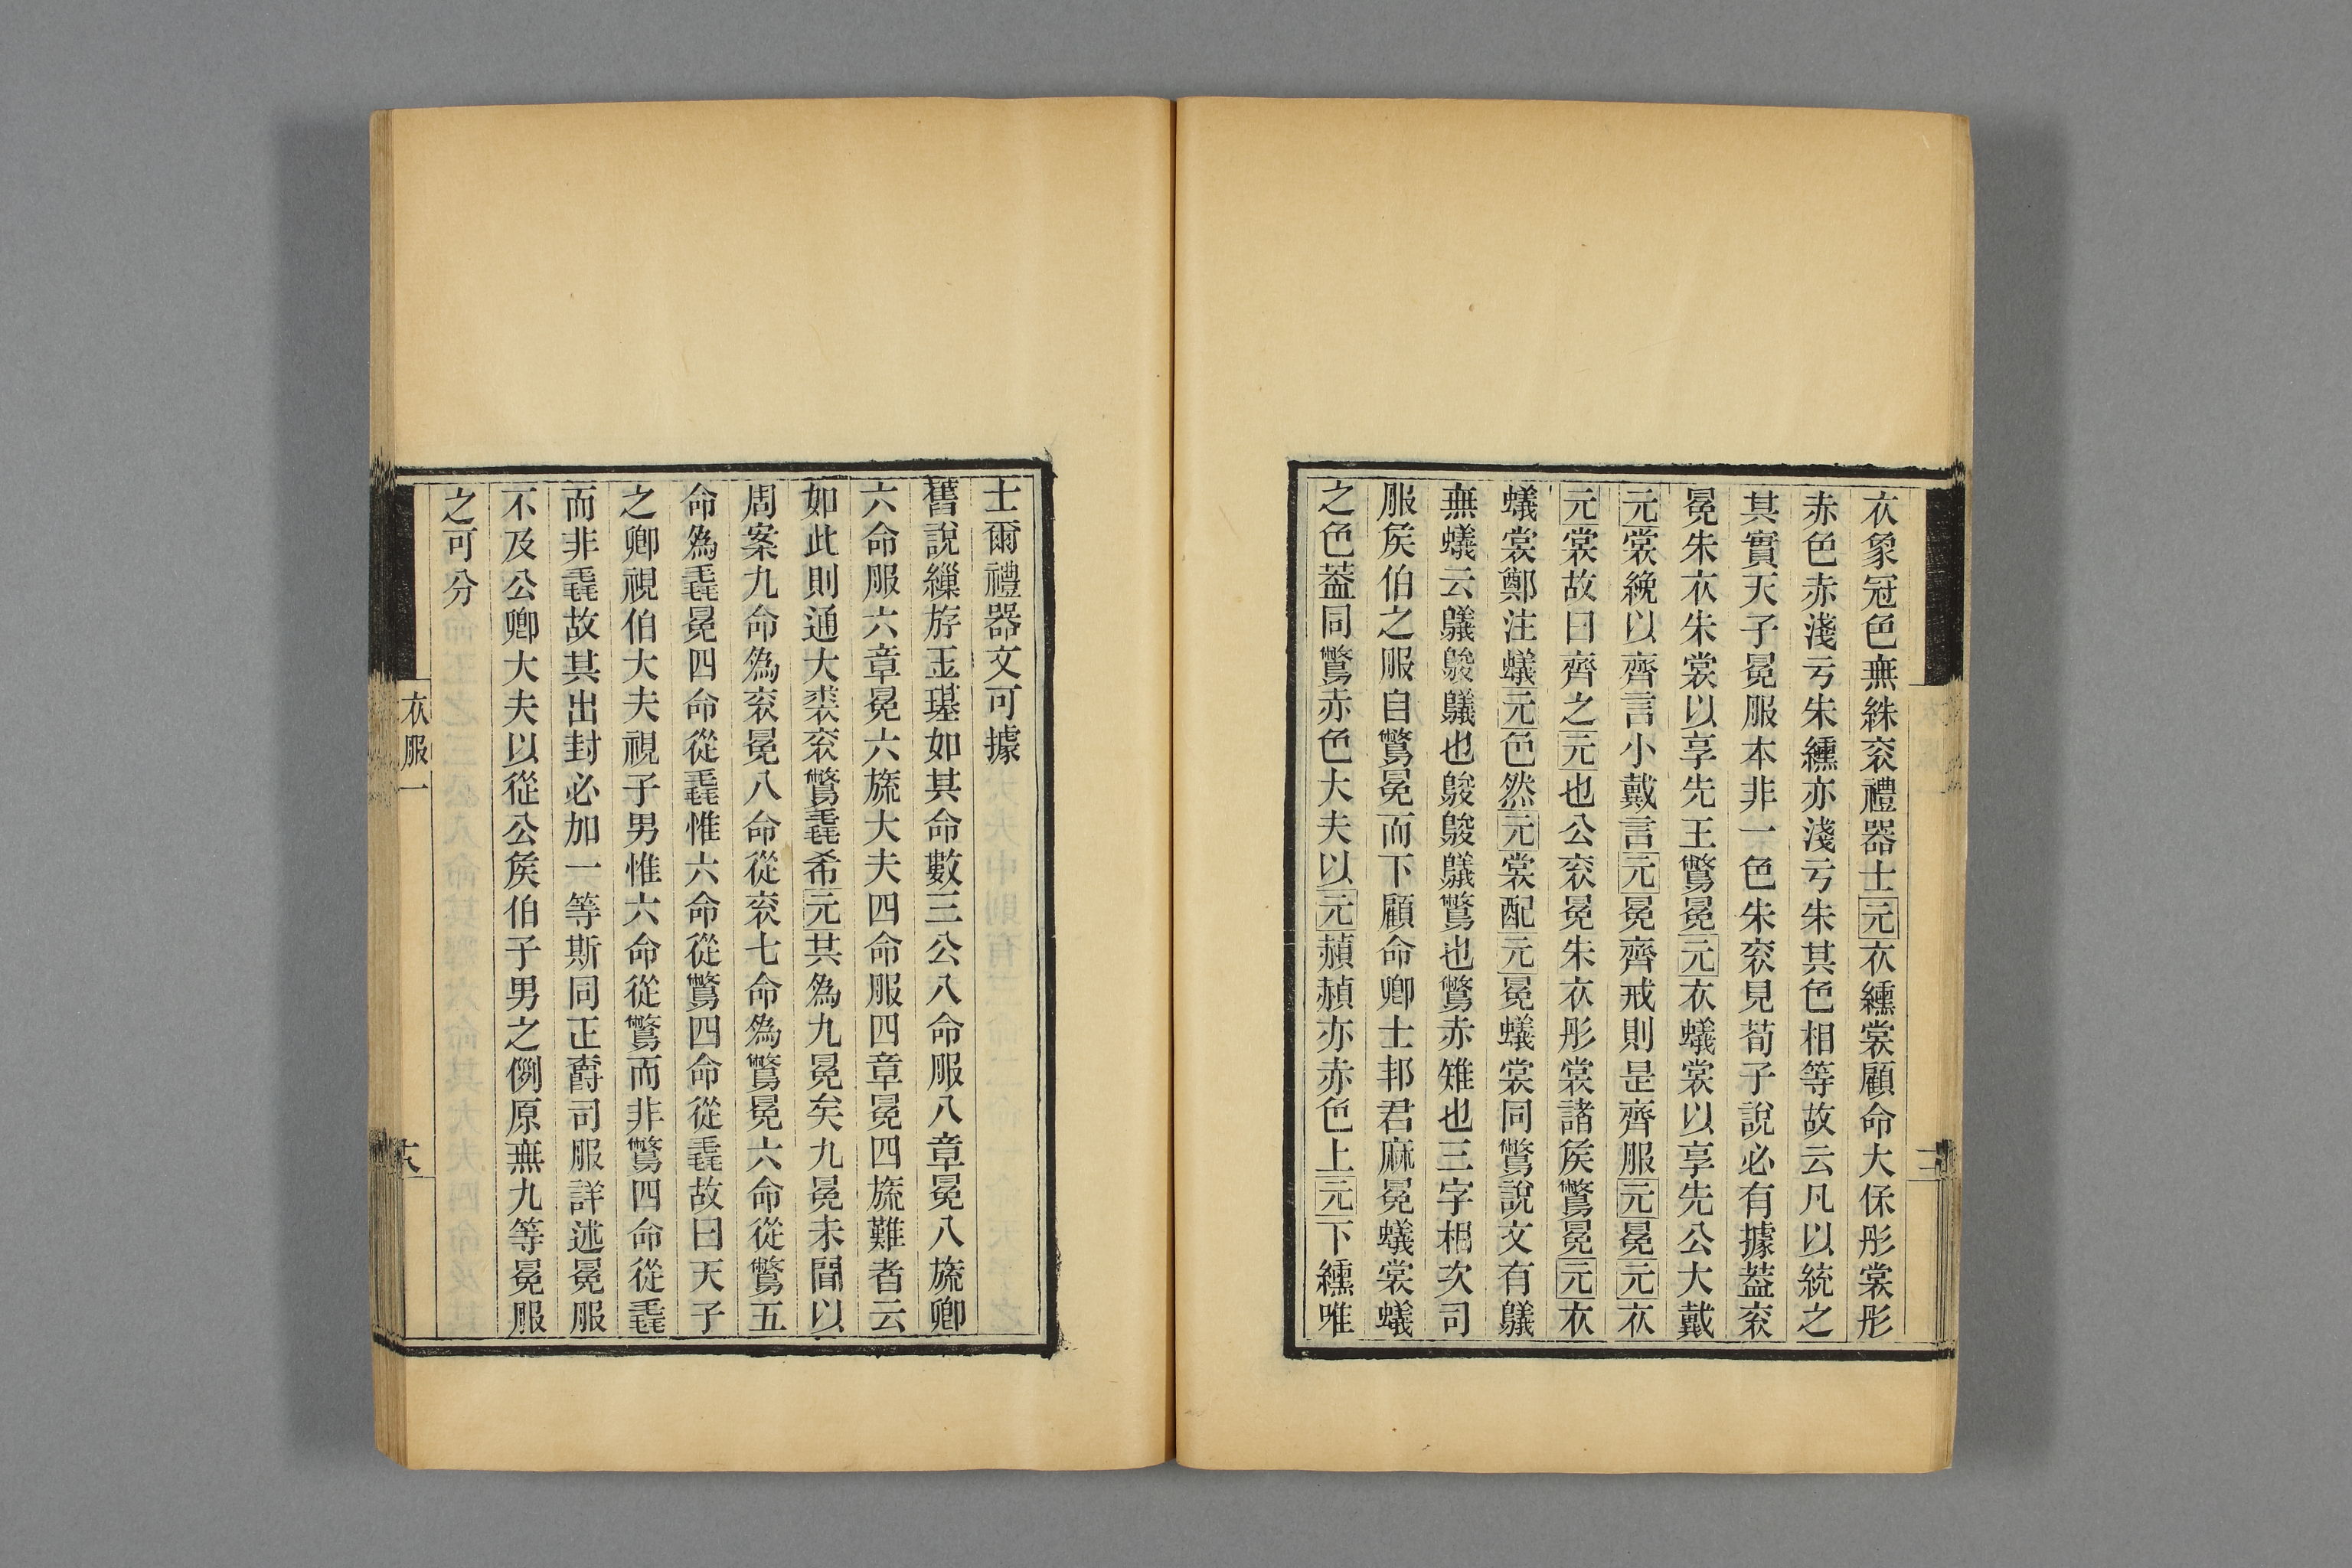 衣象冠色無絑衮禮器士元衣纁裳顧命大保彤裳彤
赤色赤淺亏朱纁亦淺亏朱其色相等故云凡以統之
其實天子冕服本非一色朱衮見荀子說必有據葢衮
冕朱衣朱裳以享先王鷩冕元衣蟻裳以享先公大戴
元裳絻以齊言小戴言元冕齊戒則是齊服元冕元衣
元裳故曰齊之元也公衮冕朱衣彤裳諸矦鷩冕元衣
蟻裳鄭注蟻元色然元裳配元冕蟻裳同鷩說文有鸃
無蟻云鸃鵔鸃也鵔鵔鸃鷩也鷩赤雉也三字相次司
服矦伯之服自鷩冕而下顧命卿士邦君麻冕蟻裳蟻
之色葢同鷩赤色大夫以元赬赬亦赤色上元下纁唯
士爾禮器文可據
舊說繅斿玉璂如其命數三公八命服八章冕八旒卿
六命服六章冕六旒大夫四命服四章冕四旒難者云
如此則通大裘衮鷩毳希元其爲九冕矣九冕未聞以
周案九命爲衮冕八命從衮七命爲鷩冕六命從鷩五
命爲毳冕四命從毳惟六命從鷩四命從毳故曰天子
之卿視伯大夫視子男惟六命從鷩而非鷩四命從毳
而非毳故其出封必加一等斯同正爵司服詳述冕服
不及公卿大夫以從公矦伯子男之例原無九等冕服
之可分
衣服一